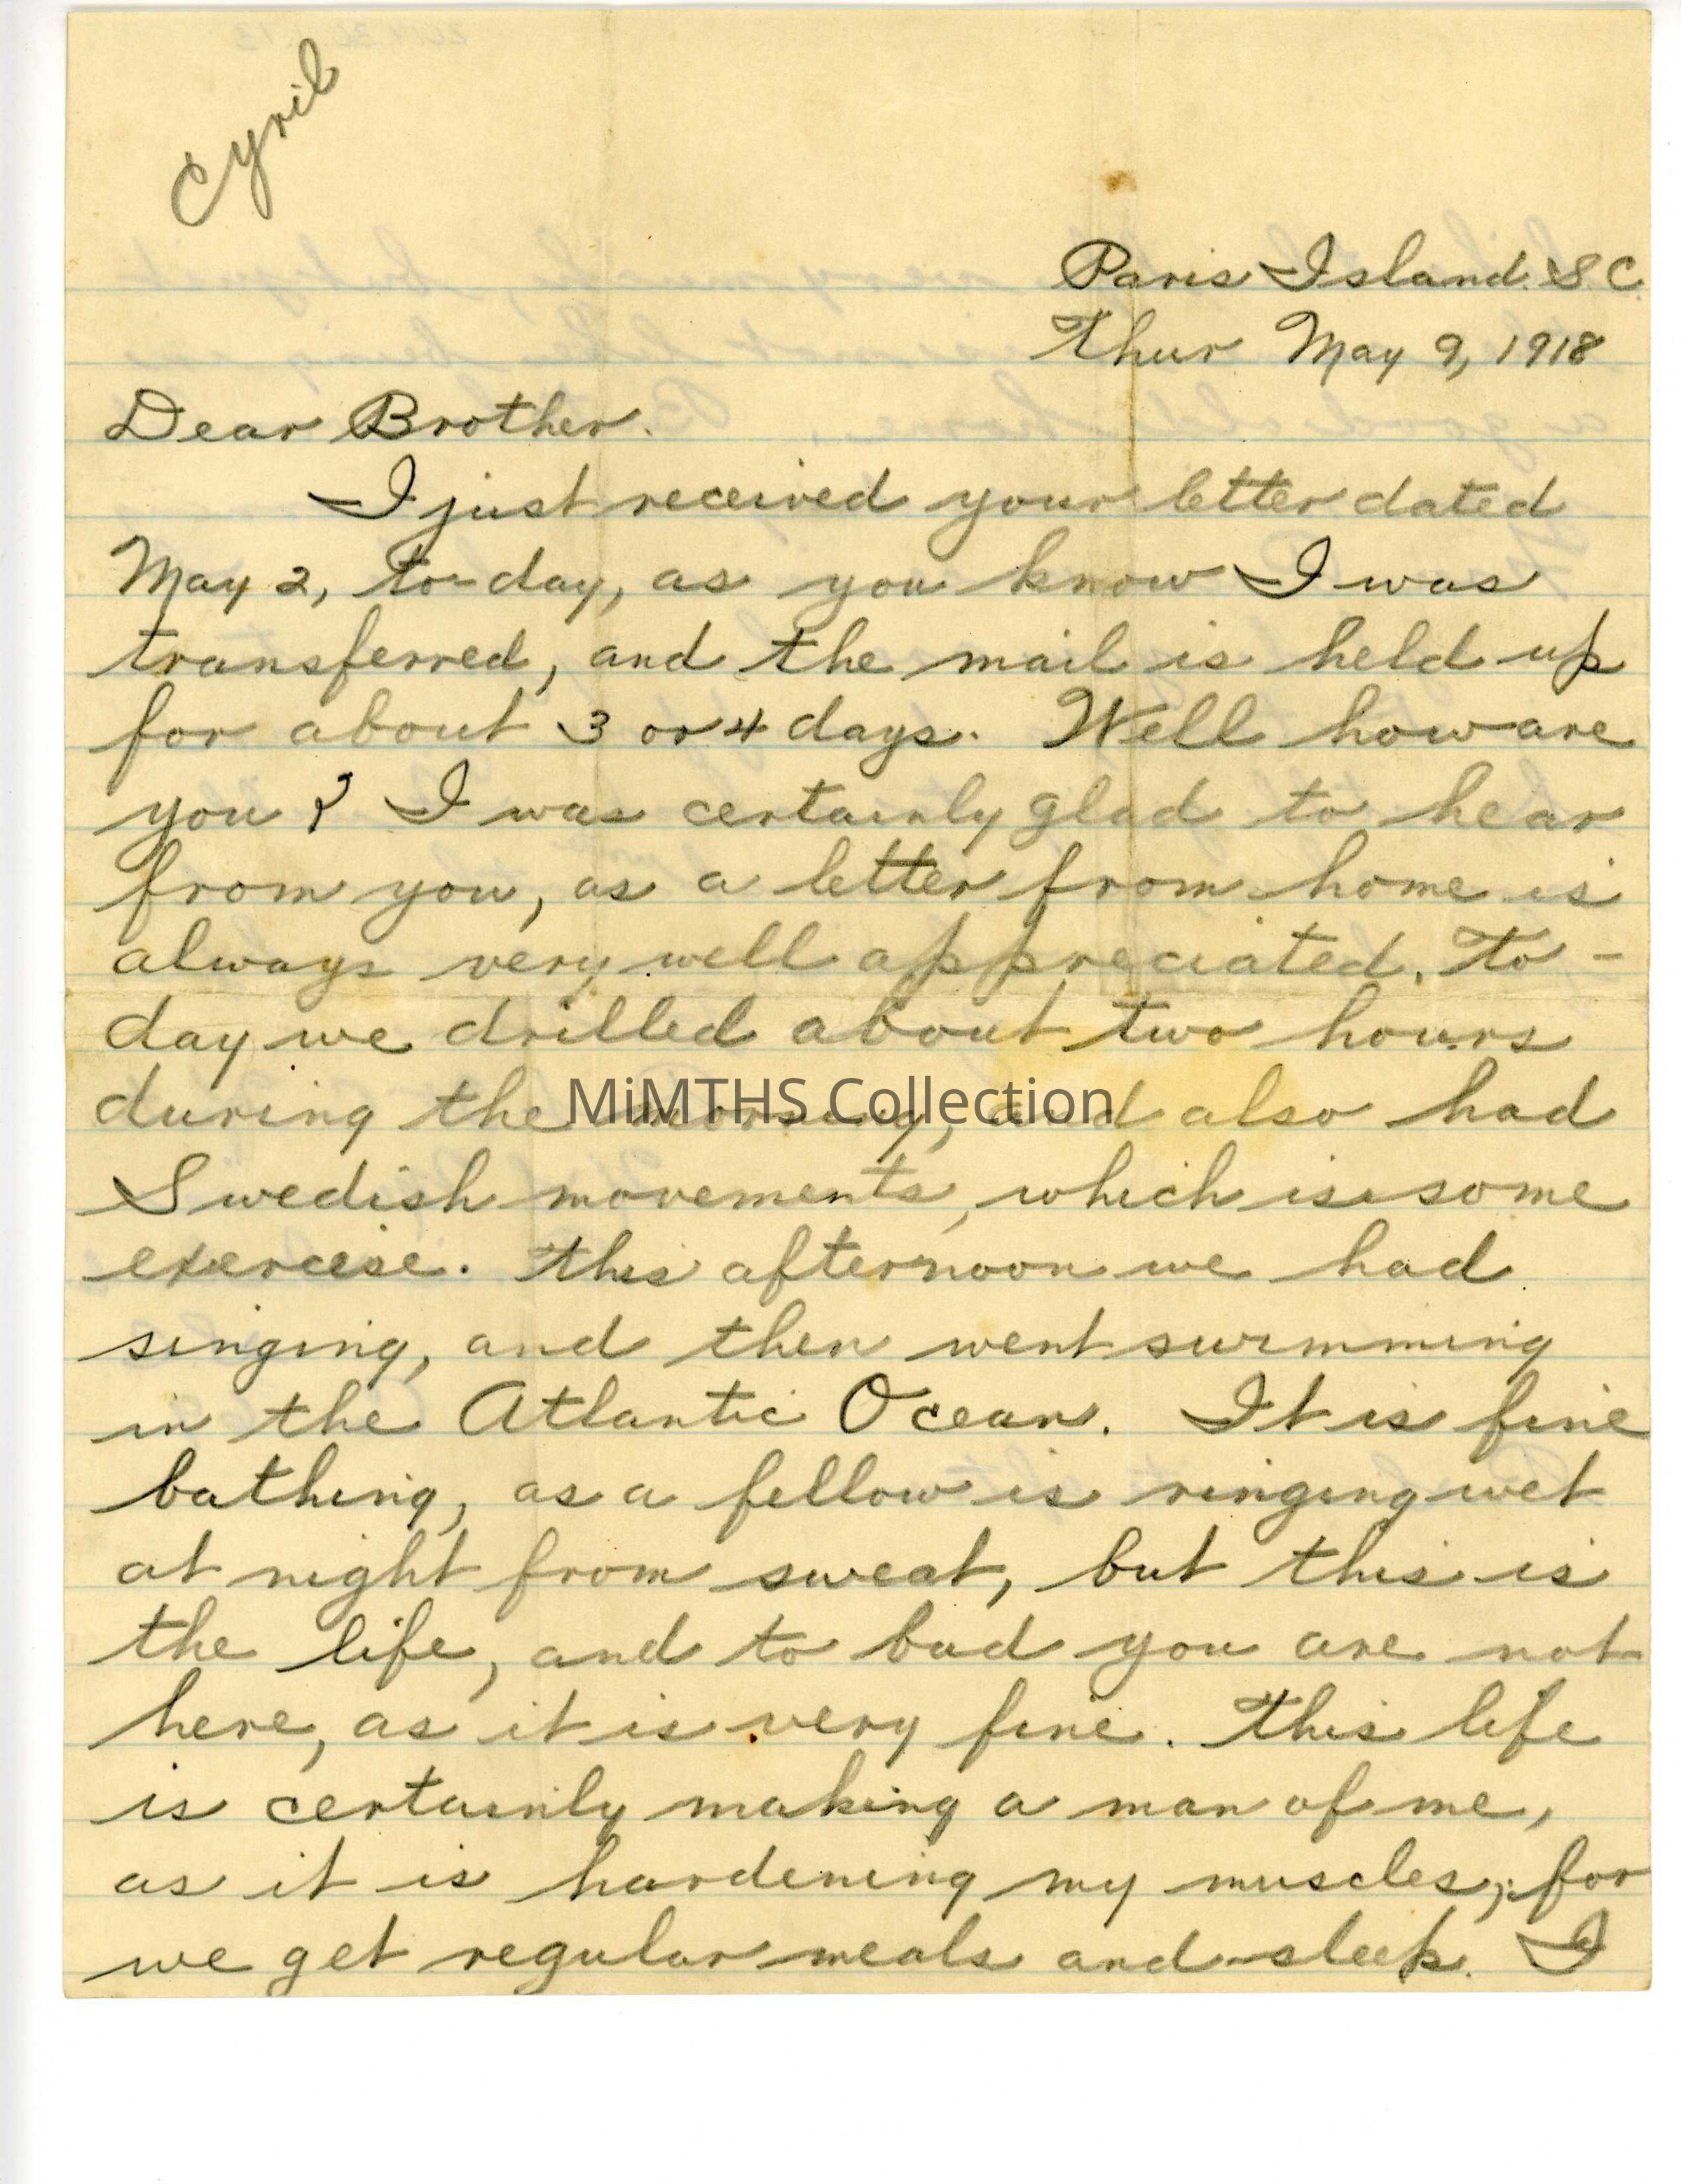 Cyril
Paris Island. S.C.
Thur May 9, 1918
Dear Brother.
I just received your letter dated
May 2, to-day, as you know I was
transferred, and the mail is held up
for about 3 or 4 days. Well how are
you? I was certainly glad to hear
from you, as a letter from home is
always very well appreciated. To-
day we drilled about two hours
during the morning, and also had
MiMTHS Collection
Swedish movements, which is some
exercise. This afternoon we had
singing, and then went swimming
in the Atlantic Ocean. It is fine
bathing, as a fellow is ringing wet
at night from sweat, but this is
the life, and to bad you are not
here, as it is very fine. This life
is certainly making a man of me,
as it is hardening my muscles; for
we get regular meals and sleep. I